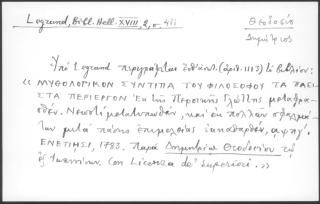 Legrand, Bibl. Hell. XVIII, 2, σ. 411
Θεοδοσίου
Δημήτριος
Ὑπὸ Legrand περιγράφεται (ἀριθ. 1113) τὸ βιβλίον:
« ΜΥΘΟΛΟΓΙΚΟΝ ΣΥΝΤΙΠΑ ΤΟΥ ΦΙΛΟΣΟΦΟΥ ΤΑ ΠΛΕΙ-
ΣΤΑ ΠΕΡΙΕΡΓΟΝ Ἐκ τῆς Περσικῆς Γλώττης μεταφρα-
σθέν. Νεωστὶ μετατυπωθὲν, καὶ ἐκ πολλῶν σφαλμά-
των μετὰ πάσης ἐπιμελείας ἀνακαθαρθέν, αψπγ΄.
ΕΝΕΤΙΗΣΙ, 1783. Παρὰ Δημητρίῳ Θεοδοσίου τῷ
ἐξ Ἰωαννίνων. Con Licenza de' Superiori. »